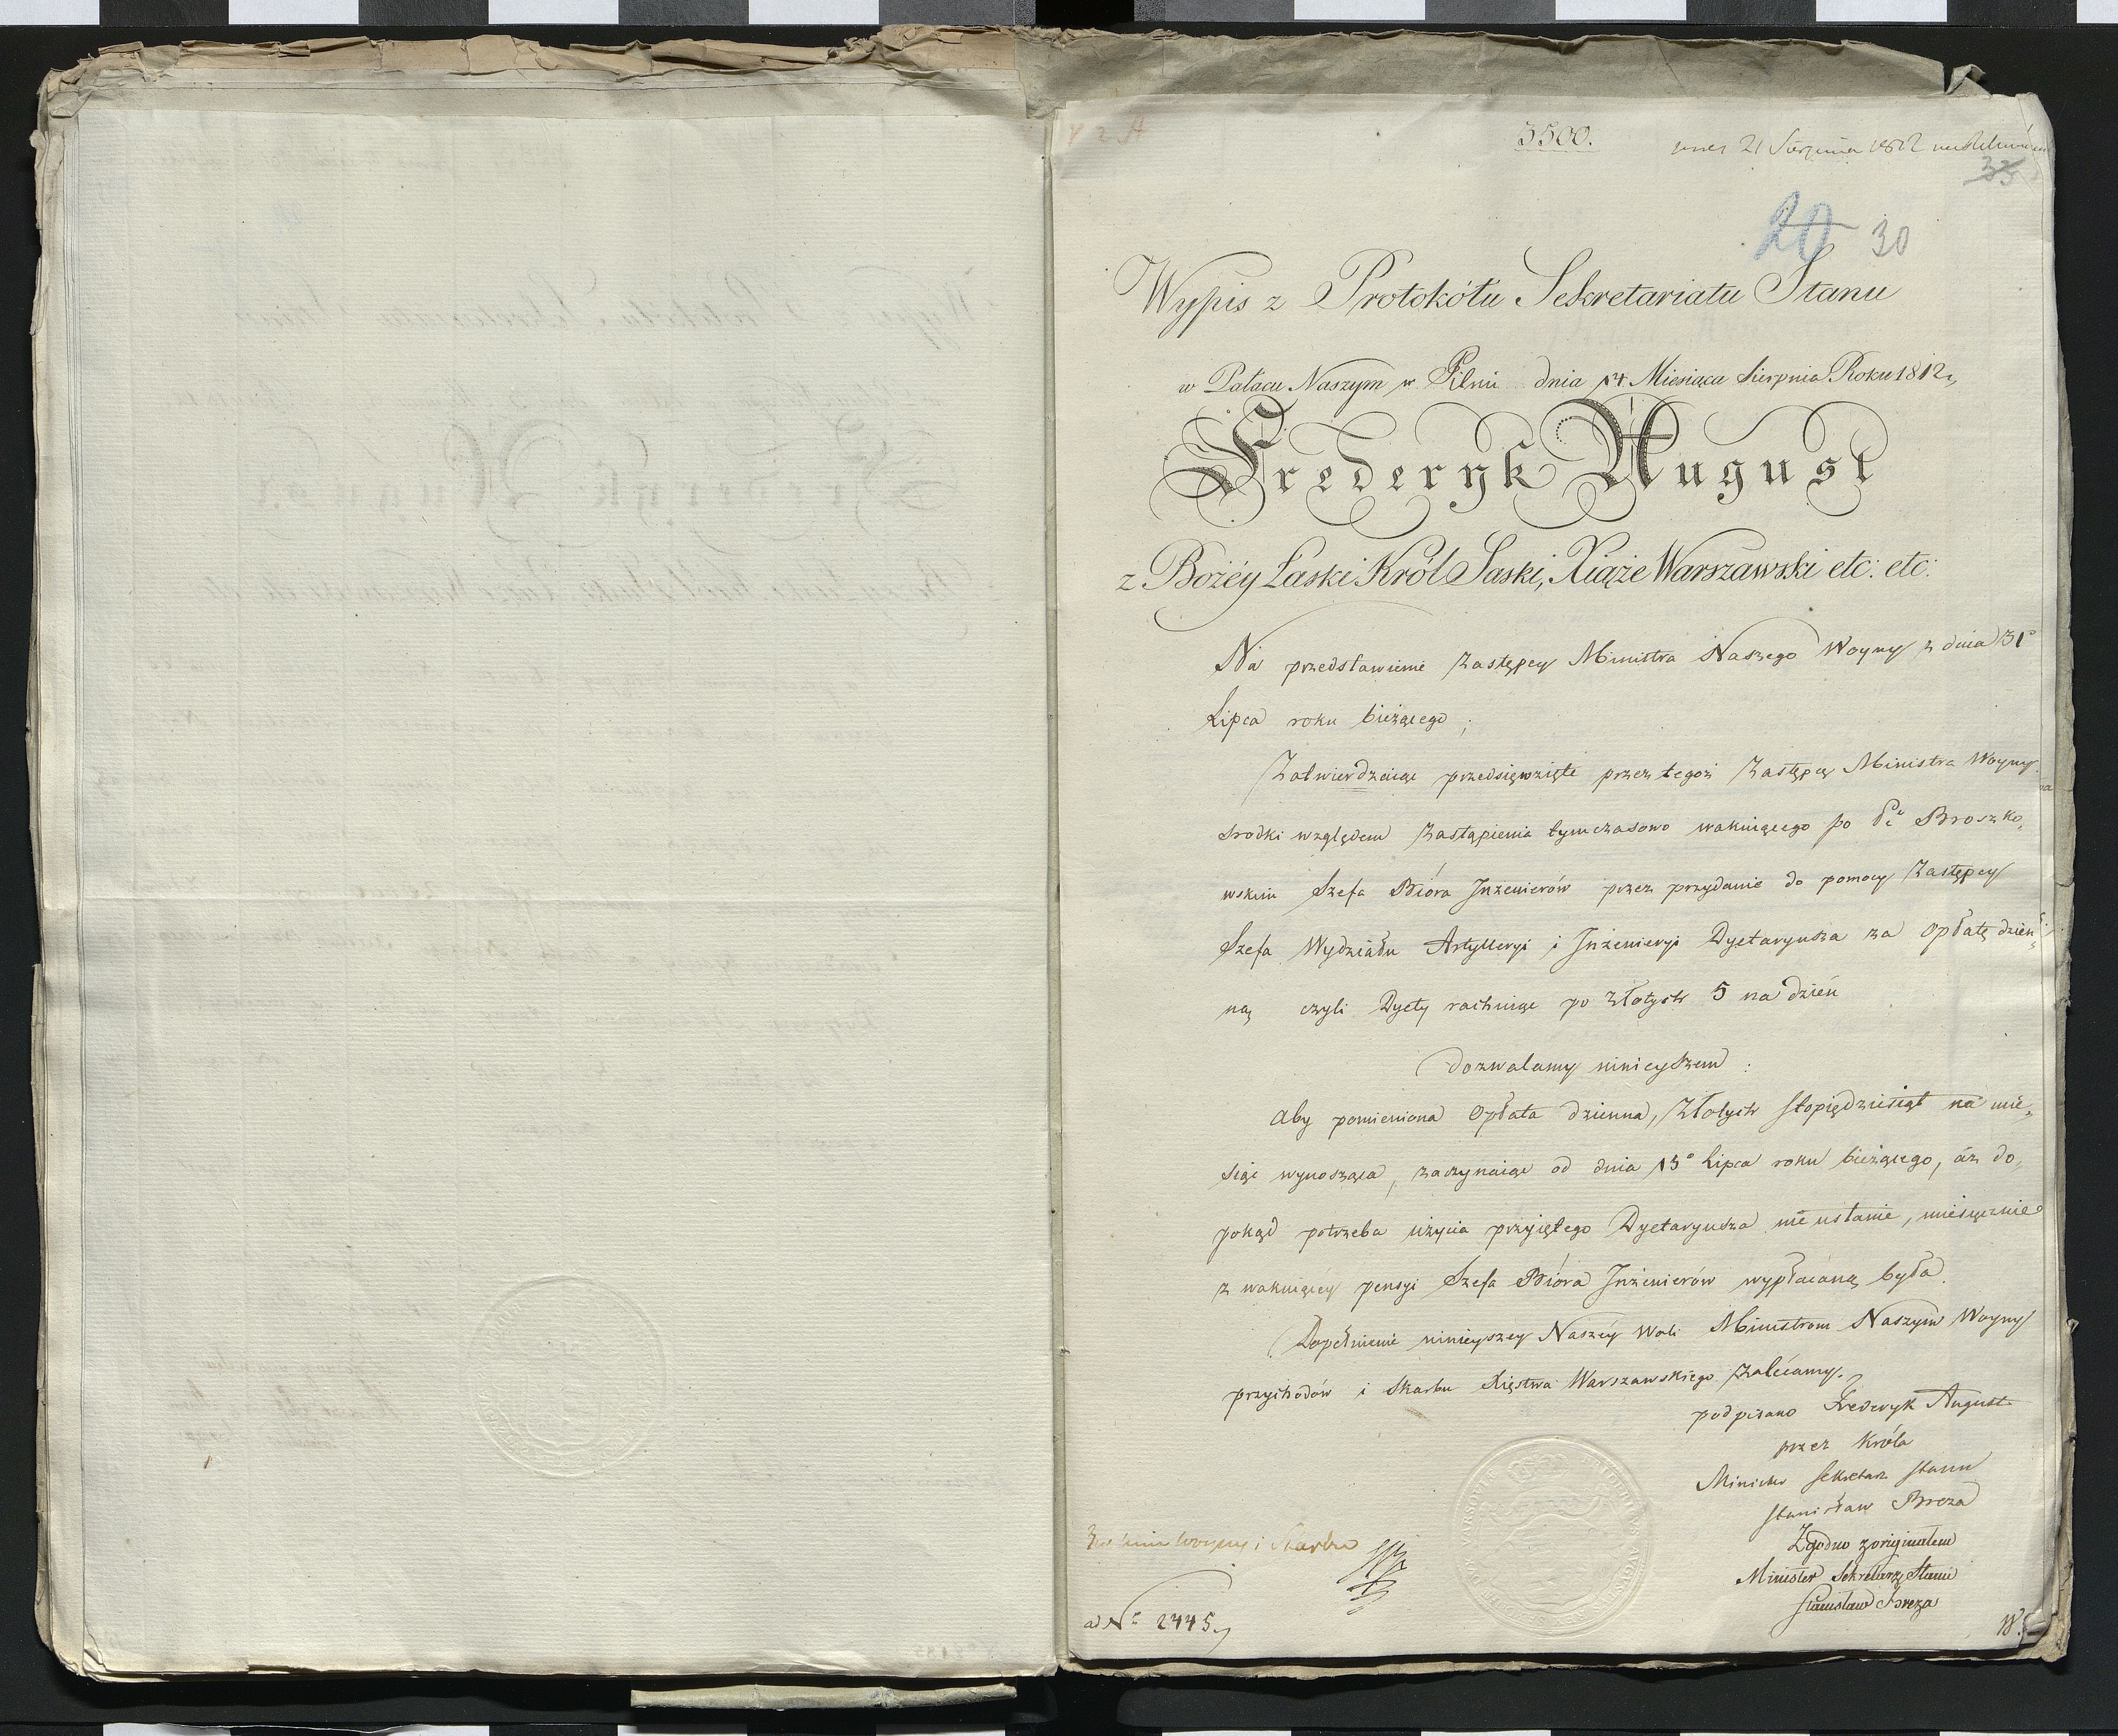 3500.
21 Sierpnia 1812
33
20 30
Wypis z Protokółu Sekretariatu Stanu
w Pałacu Naszym w Pilni dnia 14 Miesiąca Sierpnia Roku 1812,
Frederyk August
z Bożéy Łaski Król Saski, Xiąże Warszawski etc: etc:
Na przedstawienie Zastępcy Ministra Naszego Woyny z dnia 31°
Lipca roku bieżącego ;
Zatwierdzaiąc przedsięwzięte przez tegoż Zastępcę Ministra Woyny
srodki względem zastąpienia tymczasowo wakuiącego po Broszko„
wskim Szefa Bióra Inżenierów przez przydanie do pomocy Zastępcy
Szefa Wydziału Artylleryi i Inżenieryi Dyetaryusza za opłatę dzień„
ną czyli Dyety rachuiąc po Złotych 5 na dzień
Dozwalamy ninieyszem :
Aby pomieniona opłata dzienna, Złotych stopiędziesiąt na mie„
siąc wynosząca, zaczynaiąc od dnia 13° Lipca roku bieżącego, aż do„
pokąd potrzeba użycia przyiętego Dyetaryusza nie ustanie, miesięcznie
z wakuiącey pensyi Szefa Bióra Inżenierów wypłacaną była.
Dopełnienie ninieyszey Naszéy Woli Ministrom Naszym Woyny
przychodów i Skarbu Xięstwa Warszawskiego zalécamy.
podpisano Frederyk August
przez Króla
Minister Sekretarz Stanu
Stanisław Breza
Zgodno z originałem
Minister Sekretarz Stanu
Stanisław Breza
Woyny i Skarbu
ad N° 2445,
W.